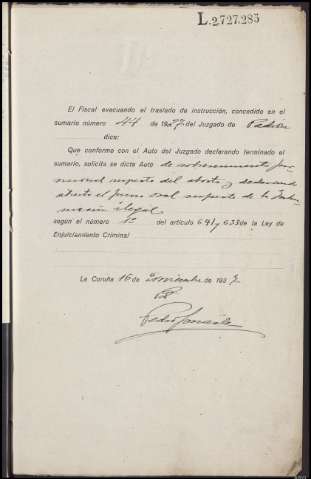 L.2.727.283
El Fiscal evacuando el traslado de instrucción, concedido en el
sumario número 44 de 1927 del Juzgado de Padrón
dice:
Que conforme con el Auto del Juzgado declarando terminado el
sumario, solicita se dicte Auto de sobreseimiento pro-
visional respecto del aborto y declarando
abierto el juicio oral respecto de la inhu-
mación ilegal
según el número 1º del artículo 641 y 633 de la Ley de
Enjuiciamiento Criminal
La Coruña 16 de de 1927
Pedro